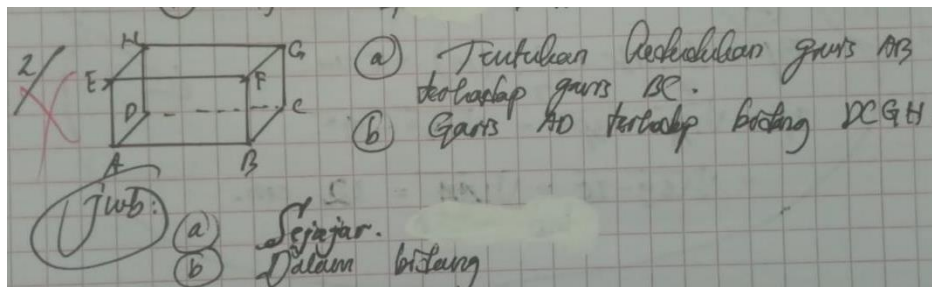 2/
H G
E F
D C
A B
(a) Tentukan kedudukan garis AB
terhadap garis BC.
(b) Garis AD terhadap bidang DCGH
jwb:
(a) Sejajar.
(b) Dalam bidang